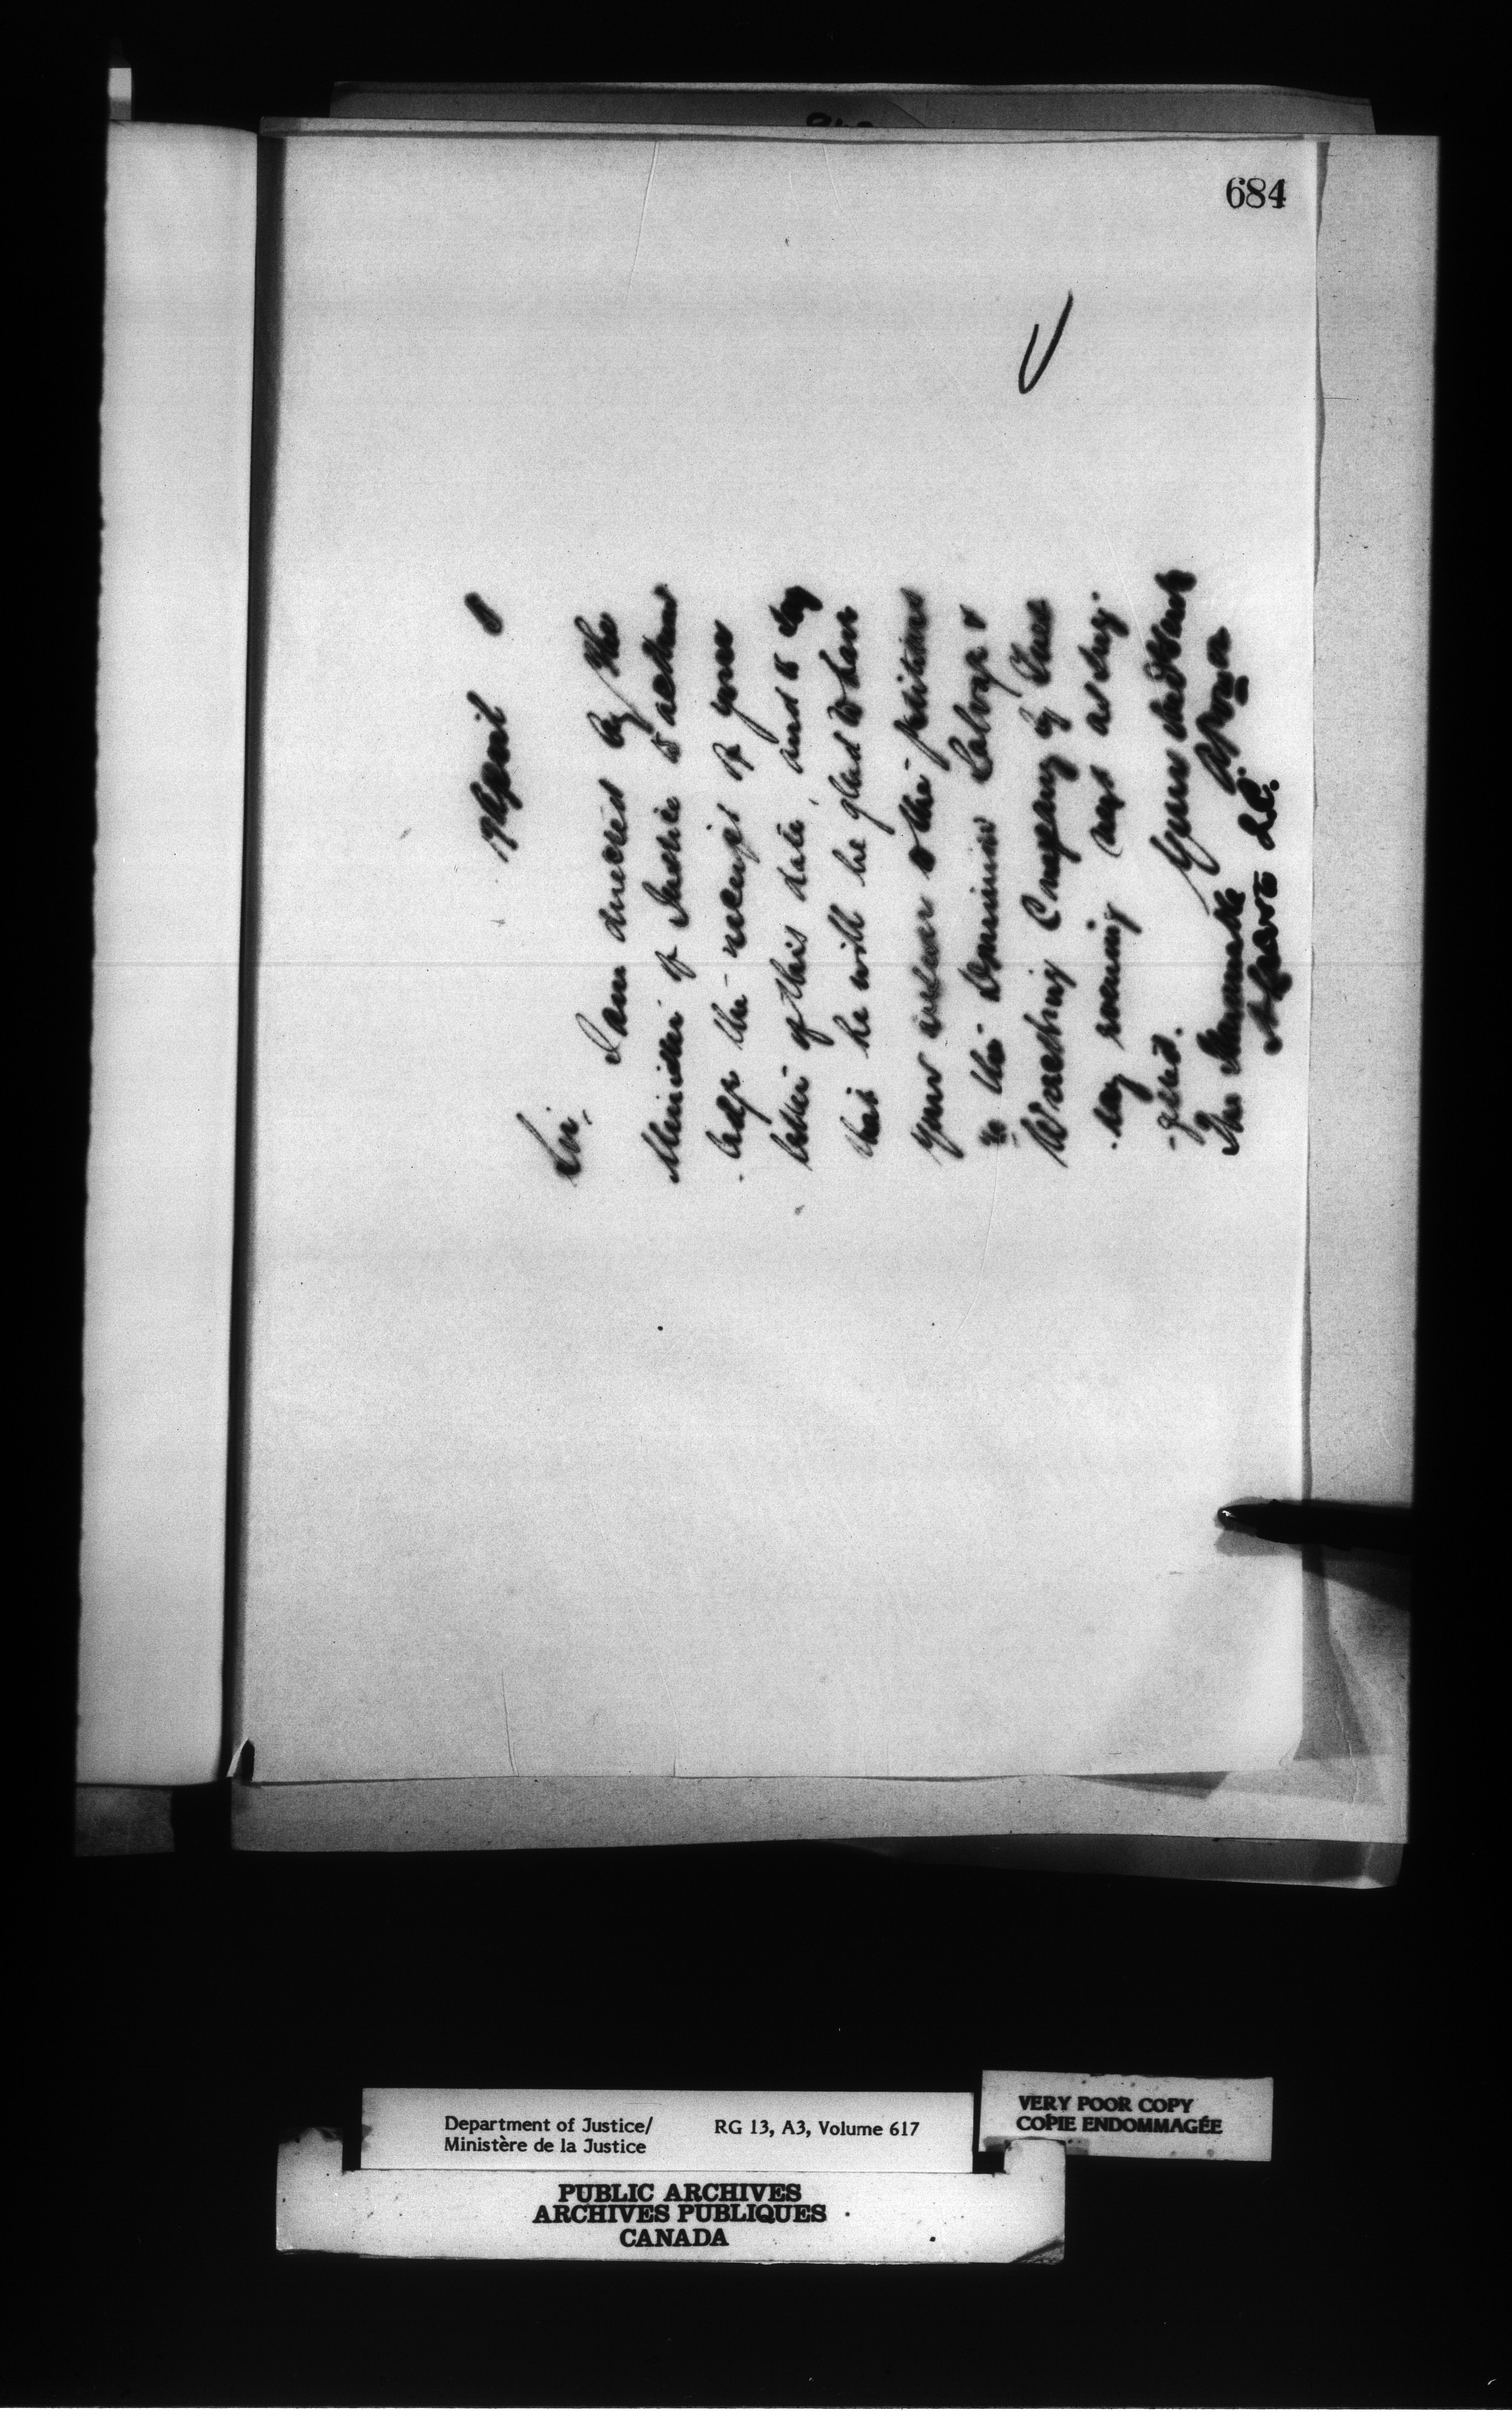 684
19 April
Sir,
I am directed by the
Minister of Justice to acknow
-ledge the receipt of your
letter of this date, and to say
that he will be glad to have
your answer to the petitions
to the Dominion Salvage &
Wrecking Company by Tues
-day morning next as sug-
-gested.
Your obedt servt
The Honourable
A. Power
Q.C.
Department of Justice/
Ministère de la Justice
RG 13, A3, Volume 617
VERY POOR COPY
COPIE ENDOMMAGÉE
PUBLIC ARCHIVES
ARCHIVES PUBLIQUES
CANADA